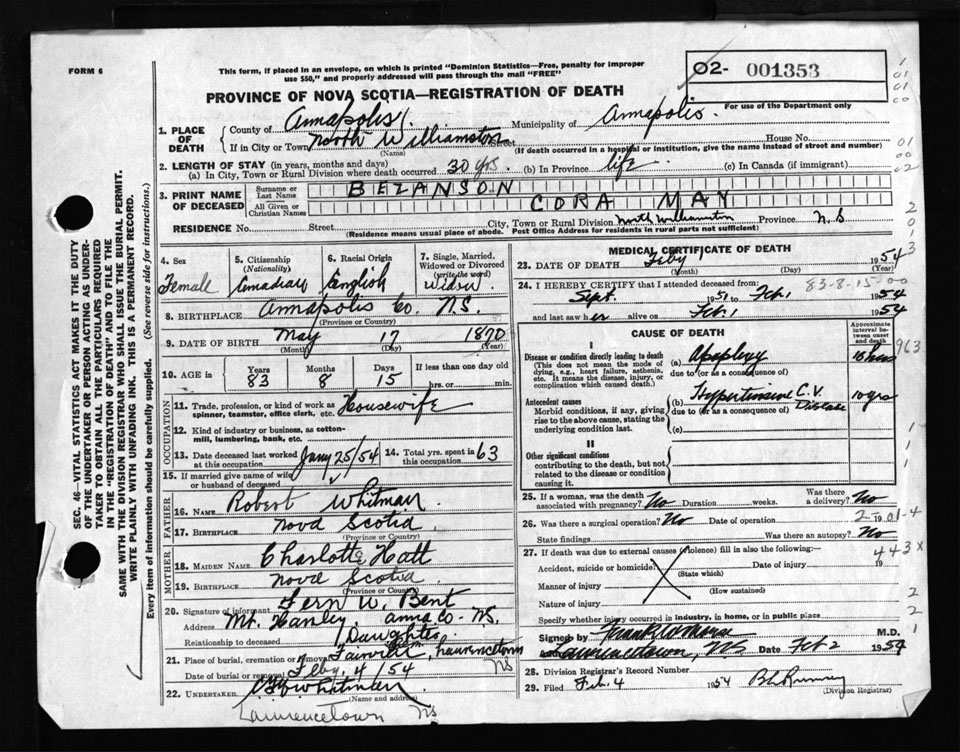 FORM 6
This form, if placed in an envelope, on which is printed "Dominion Statistics—Free, penalty for improper
use $50," and properly addressed will pass through the mail "FREE"
02- 001353
For use of the Department only
PROVINCE OF NOVA SCOTIA—REGISTRATION OF DEATH
1. PLACE OF DEATH
County of Annapolis Municipality of Annapolis
If in City or Town North Williamston Street House No.
(Name) (If death occurred in a hospital or institution, give the name instead of street and number)
2. LENGTH OF STAY (in years, months and days)
(a) In City, Town or Rural Division where death occurred 30 yrs. (b) In Province life (c) In Canada (if immigrant)
3. PRINT NAME OF DECEASED
Surname or Last Name BEZANSON
All Given or Christian Names CORA MAY
RESIDENCE No. Street City, Town or Rural Division North Williamston Province N.S
(Residence means usual place of abode. Post Office Address for residents in rural parts not sufficient)
4. Sex Female
5. Citizenship (Nationality) Canadian
6. Racial Origin English
7. Single, Married, Widowed or Divorced (write the word) Widow
8. BIRTHPLACE Annapolis Co. N.S.
(Province or Country)
9. DATE OF BIRTH May 17 1870
(Month) (Day) (Year)
10. AGE in Years 83 Months 8 Days 15 If less than one day old hrs. or min.
OCCUPATION
11. Trade, profession, or kind of work as spinner, teamster, office clerk, etc. Housewife
12. Kind of industry or business, as cotton-mill, lumbering, bank, etc.
13. Date deceased last worked at this occupation Jany 25/54
14. Total yrs. spent in this occupation 63
15. If married give name of wife or husband of deceased
FATHER
16. NAME Robert Whitman
17. BIRTHPLACE Nova Scotia
(Province or Country)
MOTHER
18. MAIDEN NAME Charlotte Hatt
19. BIRTHPLACE Nova Scotia
(Province or Country)
20. Signature of informant Fern W. Bent
Address Mt. Hanley, Anna Co- NS,
Relationship to deceased Daughter
21. Place of burial, cremation or removal Lawrencetown NS
Date of burial or removal Feby, 4 /54
22. UNDERTAKER
(Name and address)
Lawrencetown NS
MEDICAL CERTIFICATE OF DEATH
23. DATE OF DEATH Feby 1954
(Month) (Day) (Year)
83-8-15-00
24. I HEREBY CERTIFY that I attended deceased from:
Sept. 1951 to Feb. 1 1954
and last saw her alive on Feb. 1 1954
CAUSE OF DEATH
Approximate interval between onset and death
I
Disease or condition directly leading to death (a) Apoplexy 18 hrs
(This does not mean the mode of dying, e.g., heart failure, asthenia, etc. It means the disease, injury, or complication which caused death.)
due to (or as a consequence of)
Antecedent causes (b) Hypertensive C.V. Disease 10 yrs
Morbid conditions, if any, giving rise to the above cause, stating the underlying condition last.
due to (or as a consequence of)
(c)
II
Other significant conditions
contributing to the death, but not related to the disease or condition causing it.
25. If a woman, was the death associated with pregnancy? No Duration weeks. Was there a delivery? No
26. Was there a surgical operation? No Date of operation 19
State findings Was there an autopsy? No
27. If death was due to external causes (violence) fill in also the following:—
Accident, suicide or homicide? Date of injury 19
(State which)
Manner of injury
(How sustained)
Nature of injury
Specify whether injury occurred in industry, in home, or in public place
Signed by M.D.
Lawrencetown, NS Date Feb 2 1954
28. Division Registrar's Record Number
29. Filed Feb. 4 1954
(Division Registrar)
963
443x
SEC. 46—VITAL STATISTICS ACT MAKES IT THE DUTY
OF THE UNDERTAKER OR PERSON ACTING AS UNDER-
TAKER TO OBTAIN ALL THE PARTICULARS REQUIRED
IN THE "REGISTRATION OF DEATH" AND TO FILE THE
SAME WITH THE DIVISION REGISTRAR WHO SHALL ISSUE THE BURIAL PERMIT.
WRITE PLAINLY WITH UNFADING INK. THIS IS A PERMANENT RECORD.
Every item of information should be carefully supplied. (See reverse side for instructions.)